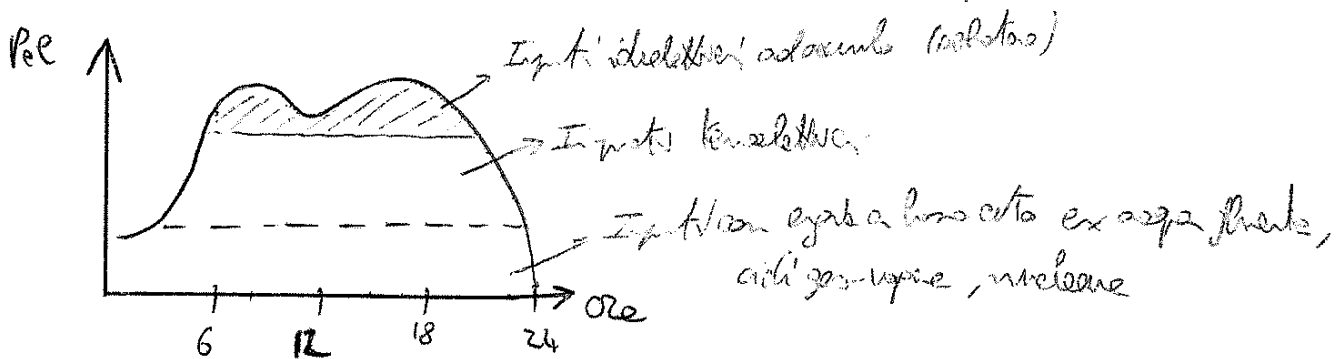 Pel
Impianti idroelettrici ad accumulo (serbatoio)
Impianti termoelettrici
Impianti con energia a basso costo ex acqua fluente,
cicli gas-vapore, nucleare
6 12 18 24 Ore